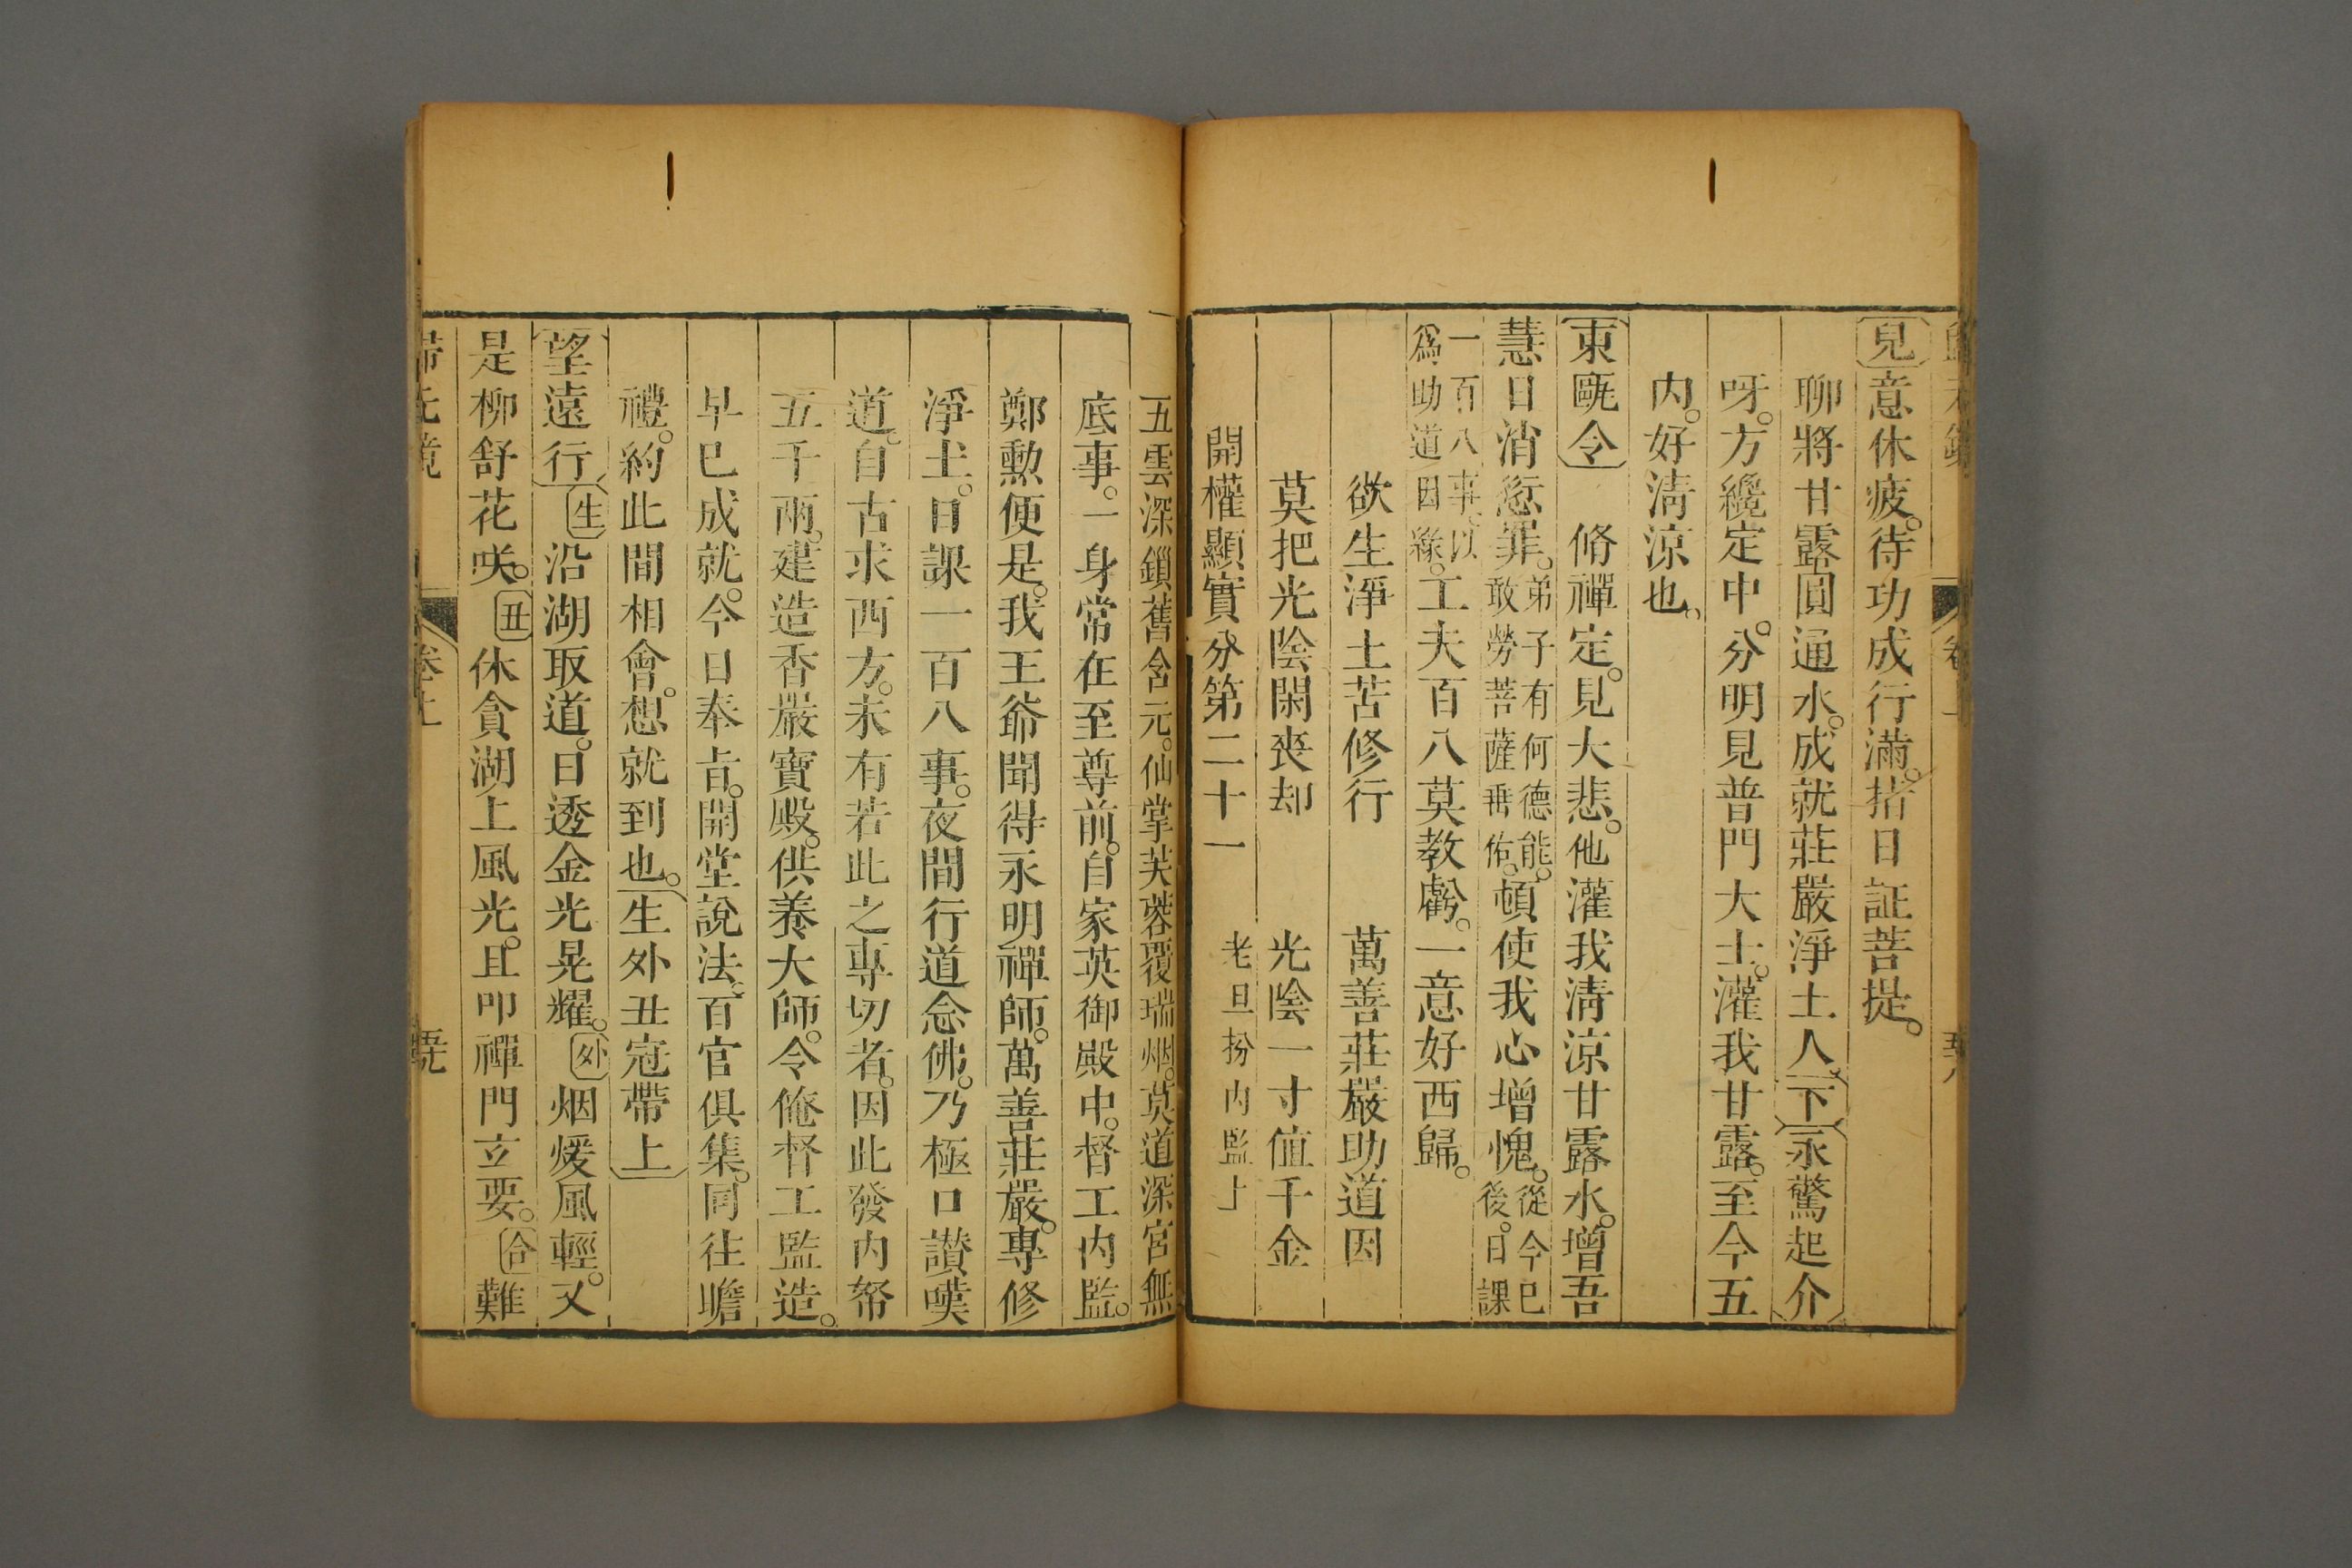 兒意休疲。待功成行滿。指日証菩提。
聊將甘露圓通水。成就莊嚴淨土人。下永驚起介
呀。方纔定中。分明見普門大士。灌我甘露。至今五
內。好淸涼也。
東甌令 脩禪定。見大悲。他灌我淸涼甘露水。增吾
慧日消愆罪。弟子有何德能。敢勞菩薩垂佑。頓使我心增愧。從今已後。日課
一百八事。以爲助道因緣。工夫百八莫教虧。一意好西歸。
欲生淨土苦修行 萬善莊嚴助道因
莫把光陰閑喪却 光陰一寸值千金
開權顯實分第二十一 老旦扮內監上
五雲深鎖舊含元。仙掌芙蓉覆瑞烟。莫道深宮無
底事。一身常在至尊前。自家英御殿中。督工內監。
鄭勲便是。我王爺聞得永明禪師。萬善莊嚴。專修
淨土。日課一百八事。夜間行道念佛。乃極口讃嘆
道。自古求西方。未有若此之專切者。因此發內帑
五千兩。建造香嚴寶殿。供養大師。令俺督工監造。
早已成就。今日奉旨。開堂說法。百官俱集。同往瞻
禮。約此間相會。想就到也。生外丑冠帶上
望遠行 生 沿湖取道。日透金光晃耀。外烟煖風輕。又
是柳舒花咲。丑休貪湖上風光。且叩禪門立要。合難
歸元鏡 卷上